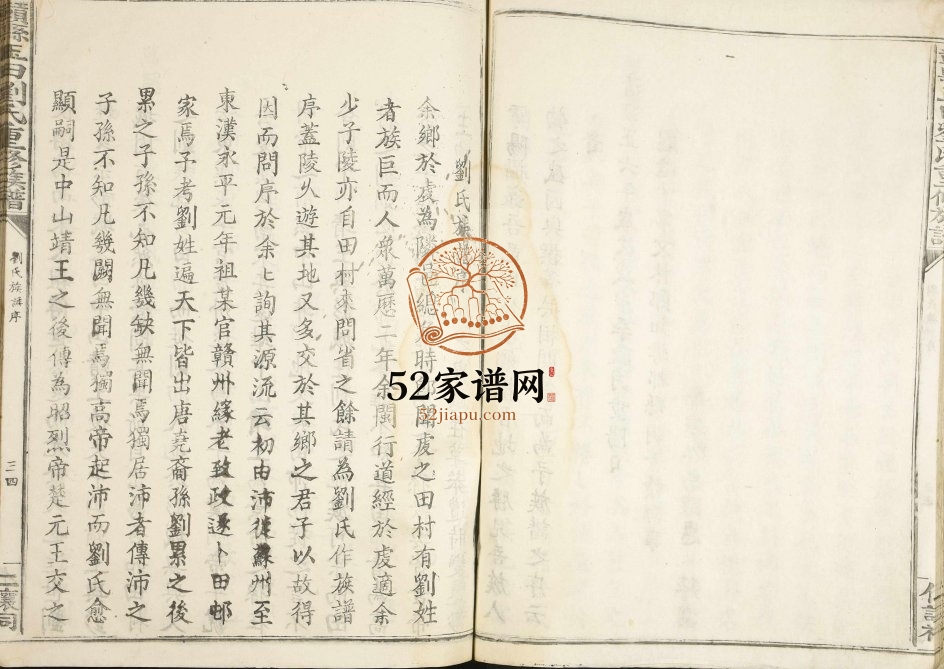 劉氏族
余鄉於虔為隣
時
聞虔之田村有劉姓
者族巨而人衆萬歷二年余閩行道經於虔適余
少子陵亦自田村來問省之餘請為劉氏作族譜
序蓋陵乆遊其地又多交於其鄉之君子以故得
因而問序於余〻詢其源流云初由沛徙蘇州至
東漢永平元年祖某官贛州緣老致政遂卜田邨
家焉予考劉姓遍天下皆出唐堯裔孫劉累之後
累之子孫不知凡幾缺無聞焉獨居沛者傳沛之
子孫不知凡幾闕無聞焉獨高帝起沛而劉氏愈
顯嗣是中山靖王之後傳為昭烈帝楚元王交之
劉氏重修族譜
劉氏族譜序
三四
52家谱网
52jiapu.com